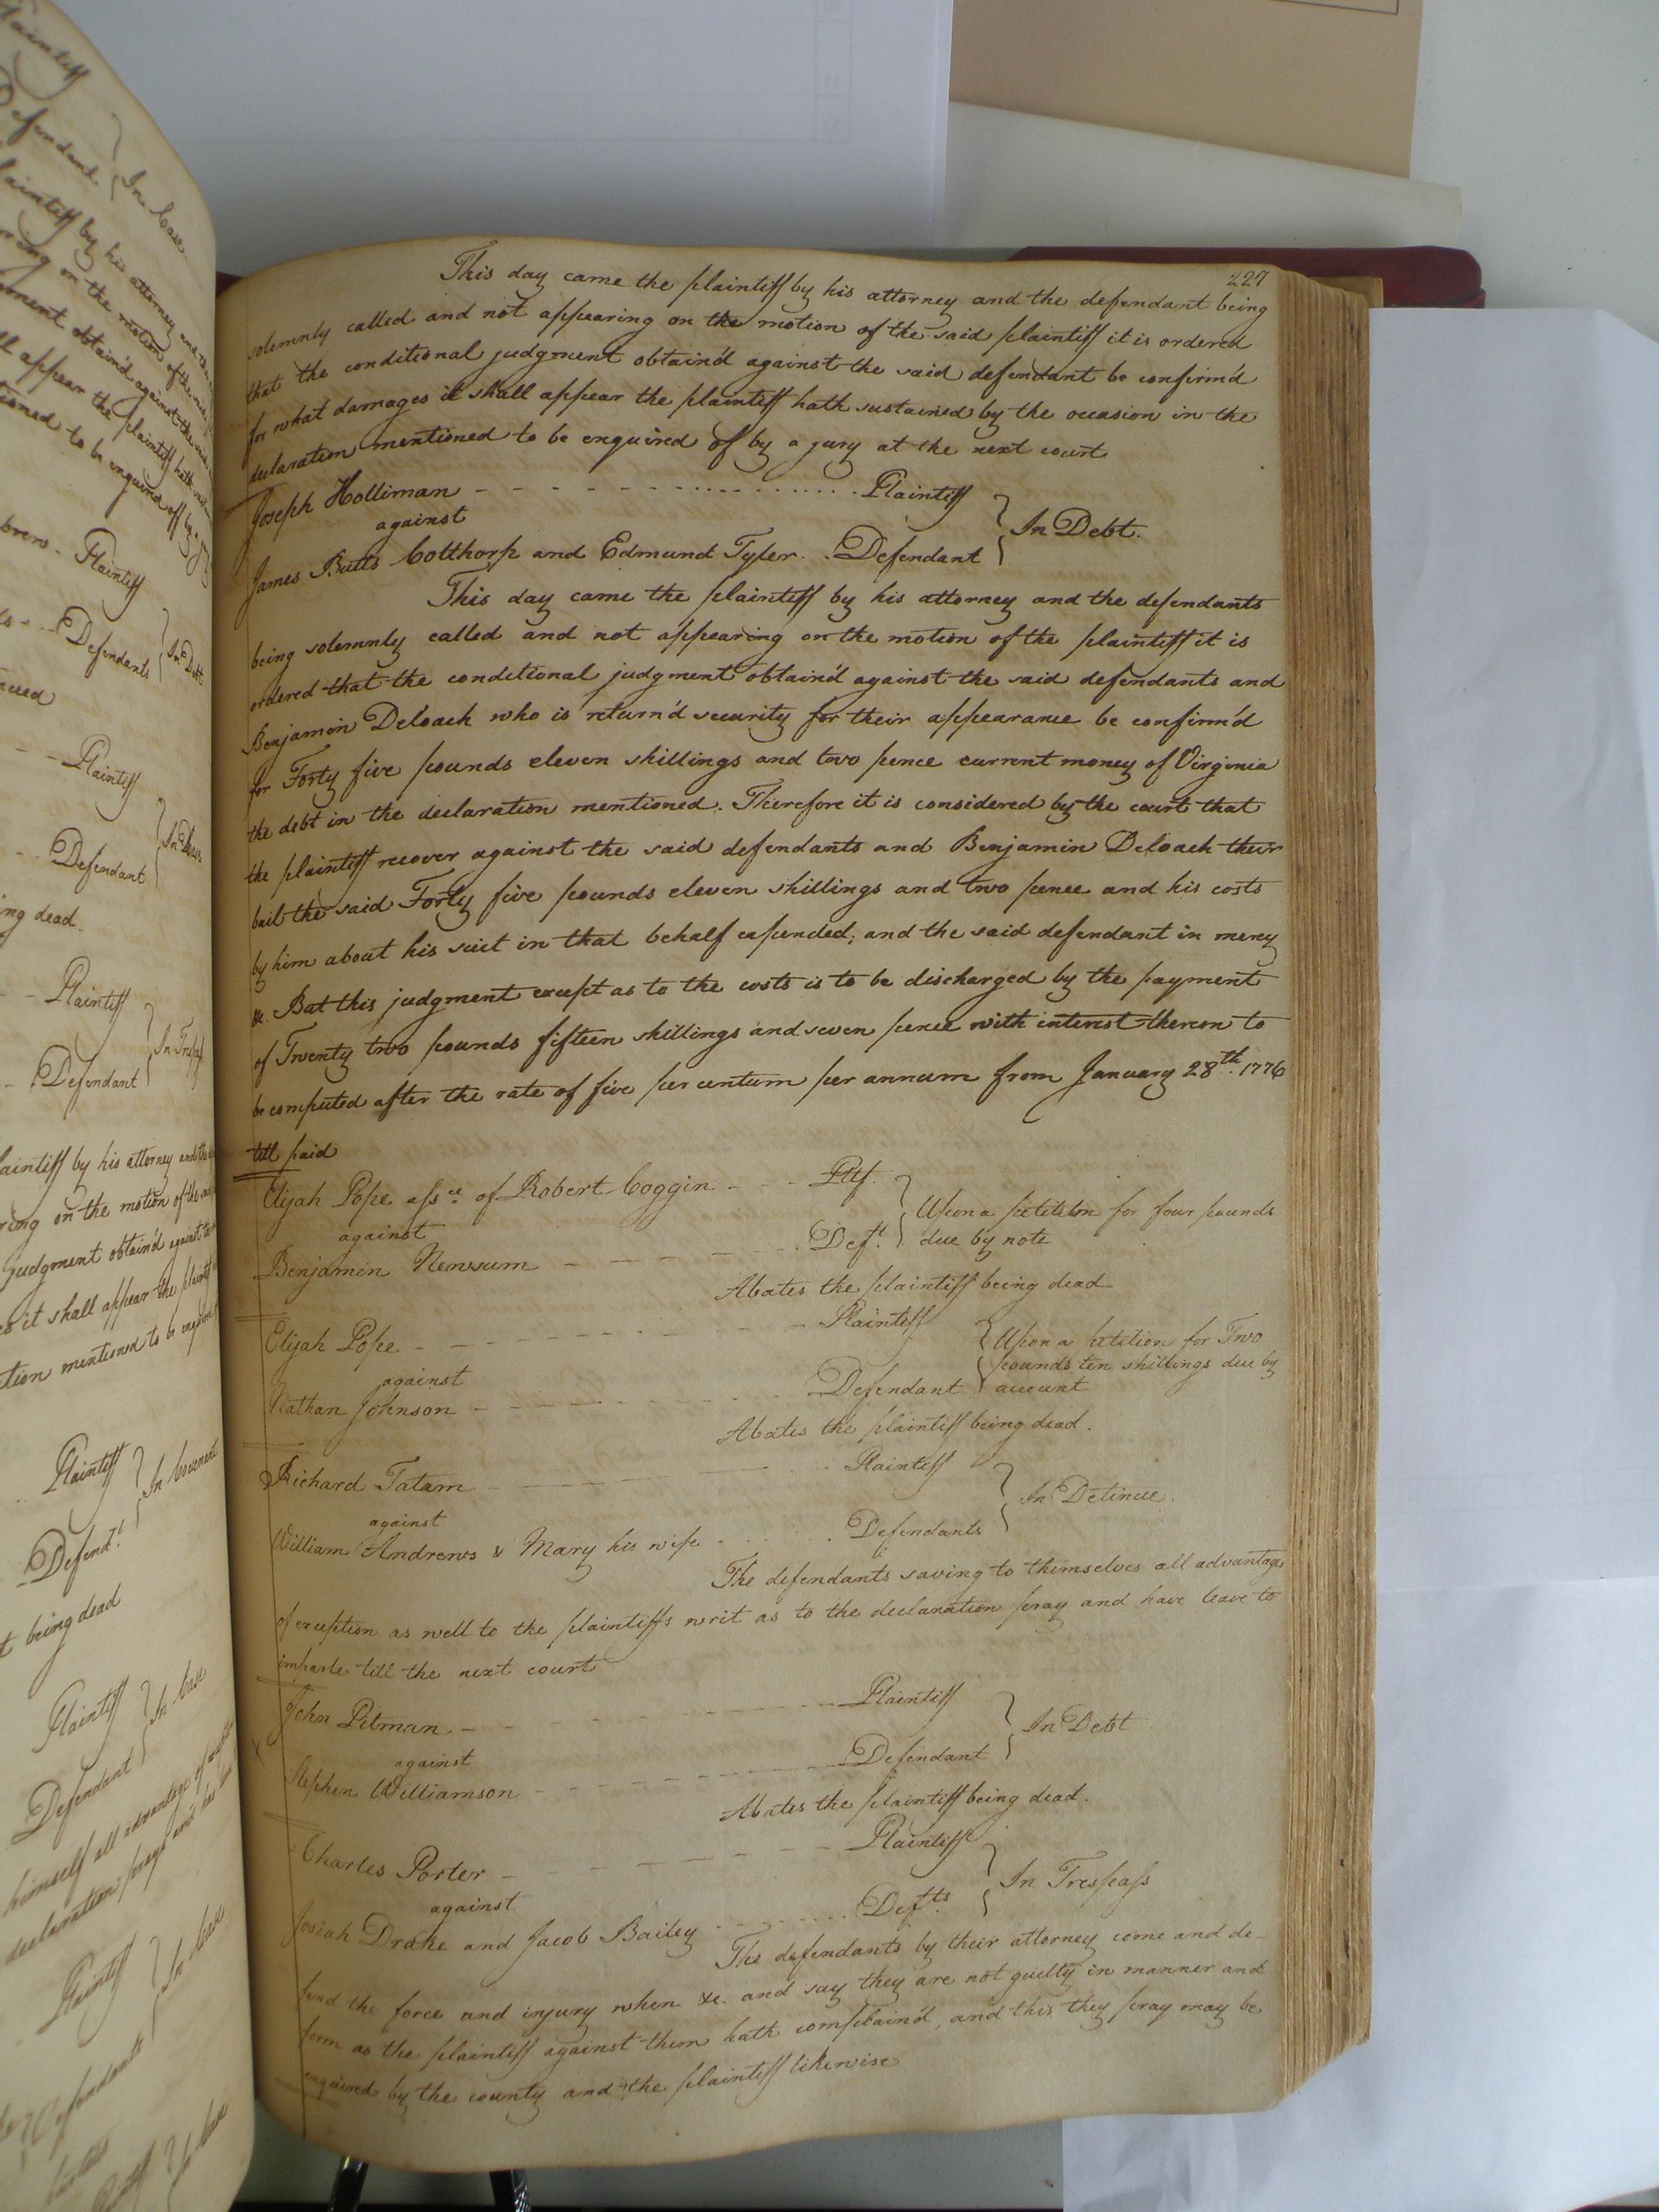 Plaintiff
Defendant } In Case
Plaintiff by his attorney and the
on the motion of the said
obtain'd against the said
appear the plaintiff hath
to be enquired off by a jury
Plaintiff
Defendants } In Debt
Plaintiff
Defendant
ing dead.
Plaintiff
Defendant } In Trespass
laintiff by his attorney and the
ring on the motion of the said
judgment obtain'd against the
it shall appear the plaintiff
tion mentioned to be enquired
Plaintiff } In Covenant
Defend.t
t being dead
Plaintiff } In Case
Defendant
himself all advantage of
declaration prays and has
Plaintiff } In Case
Defendants
227
This day came the plaintiff by his attorney and the defendant being
solemnly called and not appearing on the motion of the said plaintiff it is ordered
that the conditional judgment obtain'd against the said defendant be confirm'd
for what damages it shall appear the plaintiff hath sustained by the occasion in the
declaration mentioned to be enquired of by a jury at the next court
Joseph Holliman - - - - - - Plaintiff
against } In Debt.
James Butts Colthorp and Edmund Tyler . . Defendant
This day came the plaintiff by his attorney and the defendants
being solemnly called and not appearing on the motion of the plaintiff it is
ordered that the conditional judgment obtain'd against the said defendants and
Benjamin Deloach who is return'd security for their appearance be confirm'd
for Forty five pounds eleven shillings and two pence current money of Virginia
the debt in the declaration mentioned. Therefore it is considered by the court that
the plaintiff recover against the said defendants and Benjamin Deloach their
bail the said Forty five pounds eleven shillings and two pence and his costs
by him about his suit in that behalf expended; and the said defendant in mercy
&c. But this judgment except as to the costs is to be discharged by the payment
of Twenty two pounds fifteen shillings and seven pence with interest thereon to
be computed after the rate of five per centum per annum from January 28th. 1776
till paid
Elijah Pope assee of Robert Coggin - - - Ptf.
against } Upon a petition for four pounds
Benjamin Newsum - - - - Deft. } due by note
Abates the plaintiff being dead
Elijah Pope - - - - - - Plaintiff
against } Upon a petition for Two
pounds ten shillings due by
Nathan Johnson - - - - - Defendant } account
Abates the plaintiff being dead.
Richard Tatam - - - - - - Plaintiff
against } In Detinue.
William Andrews & Mary his wife . . . . Defendants
The defendants saving to themselves all advantages
of exception as well to the plaintiffs writ as to the declaration pray and have leave to
imparle till the next court
John Pitman. - - - - - - Plaintiff
X against } In Debt
Stephen Williamson - - - - - Defendant
Abates the plaintiff being dead.
Charles Porter - - - - - - Plaintiff
against } In Trespass
Josiah Drake and Jacob Bailey - - - Defts.
The defendants by their attorney come and de-
fend the force and injury when &c. and say they are not guilty in manner and
form as the plaintiff against them hath complain'd, and this they pray may be
enquired by the county and the plaintiff likewise